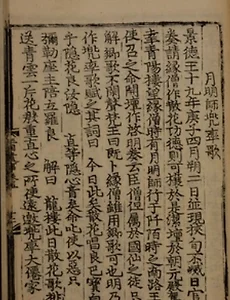 月明師兜率歌
景德王十九年庚子四月朔二日並現挾旬不滅日官
奏請緣僧作散花功德則可禳於是潔壇於朝元殿駕
幸青陽樓望緣僧時有月明師行于阡陌時之南路王
使召之命開壇作啓明奏云臣僧但屬於國仙之徒只
解鄉歌不閑聲梵王曰既卜緣僧雖用鄉歌可也明乃
作兜率歌賦之其詞曰 今日此矣散花唱良巴寶白
乎隱花良汝隱 直等隱心音矣命叱使以惡只
彌勒座主陪立羅良 解曰 龍樓此日散花歌挑
送青雲一片花殷重直心之所使遠邀兜率大僊家